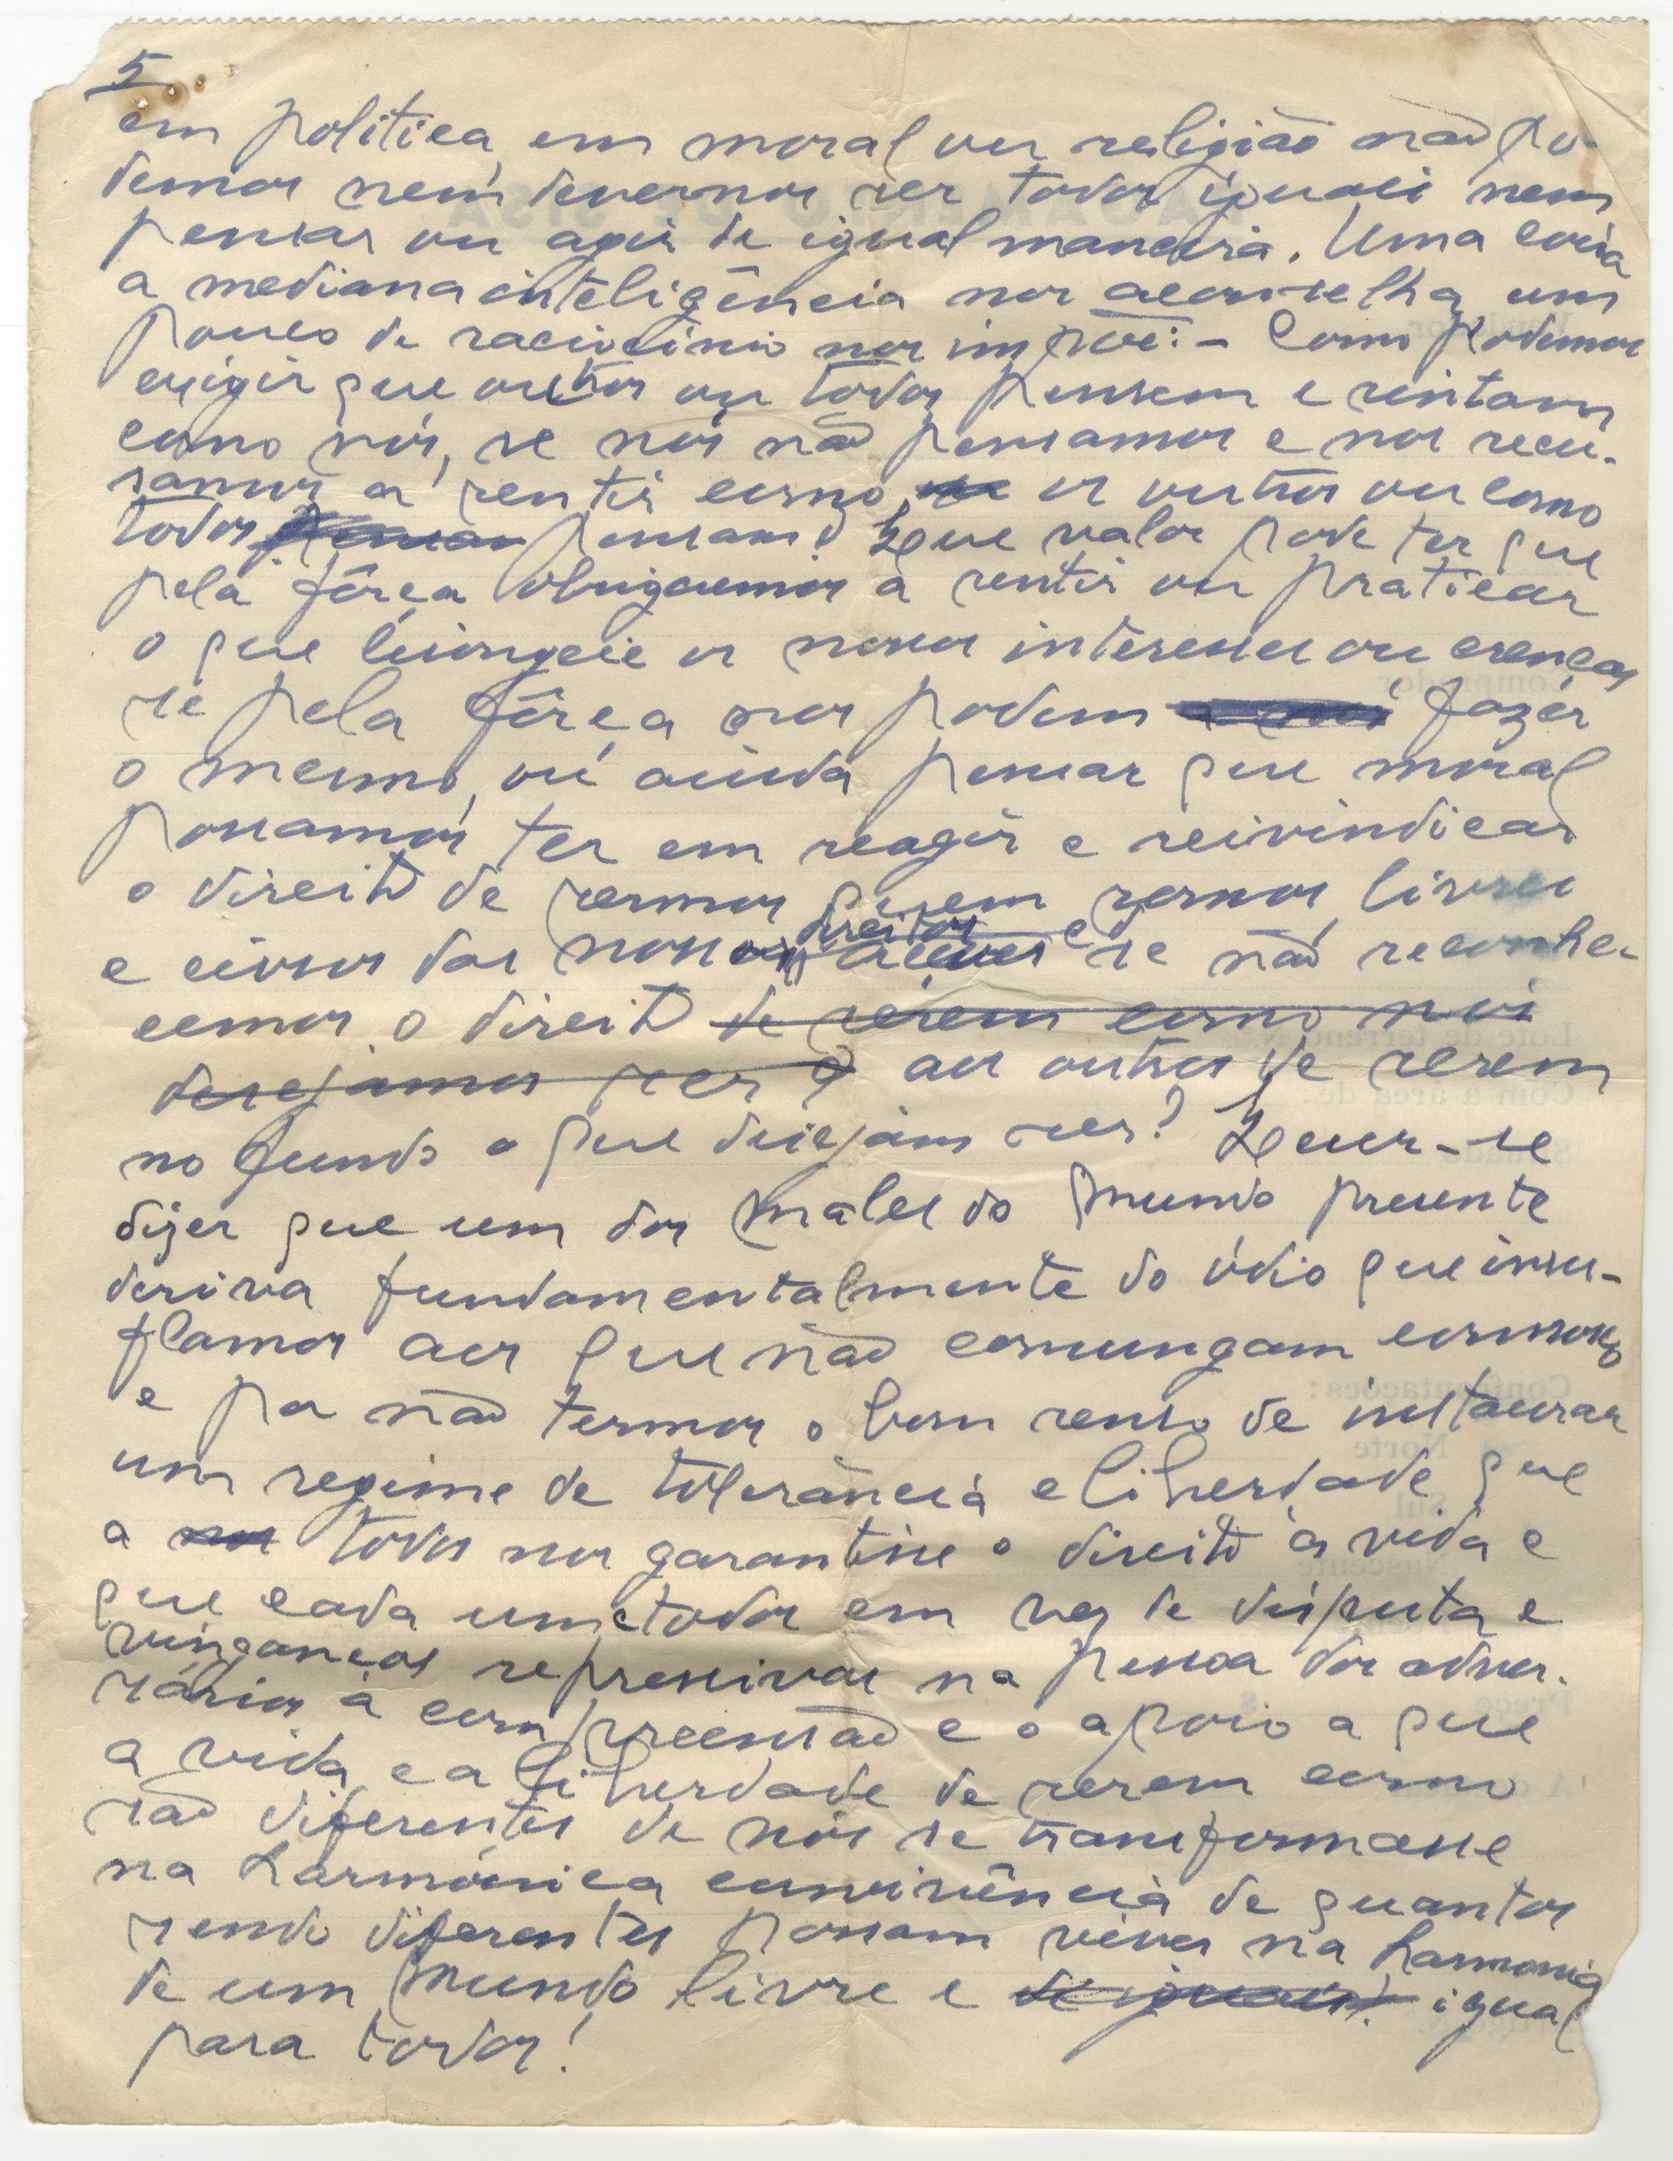 5
em politica, em moral ou religião não po-
demos nem devemos ser todos iguais nem
pensar ou agir de igual maneira. Uma coisa
a mediana inteligência nos aconselha, um
pouco de raciocinio nos impõe: - Como podemos
exigir que outros ou todos pensem e sintam
como nós, se nós não pensamos e nos recu-
samos a sentir como os outros ou como
todos pensam? Que valor pode ter que
pela fôrça obriguemos a sentir ou praticar
o que lisongeie os nossos interesses ou crenças
se pela fôrça nos podem fazer
o mesmo, ou ainda pensar que moral
possamos ter em reagir e reivindicar
o direito de sermos quem somos, livres
e ciosos dos nossos direitos e se não reconhe-
cemos o direito de serem como nós
desejamos ser aos outros de serem
no fundo o que desejam ser? Quer-se
dizer que um dos males do mundo presente
deriva fundamentalmente do ódio que insu-
flamos aos que não comungam connosco
e por não termos o bom senso de instaurar
um regime de tolerância e liberdade que
a nos todos nos garantisse o direito à vida e
que cada um e todos em vez de disputa e
vinganças repressivas na pessoa dos adver-
sários a compreensão e o apoio a que
a vida e a liberdade de serem como
são diferentes de nós se transformasse
na harmónica convivência de quantos
sendo diferentes possam viver na harmonia
de um mundo livre e de iguais? igual
para todos!